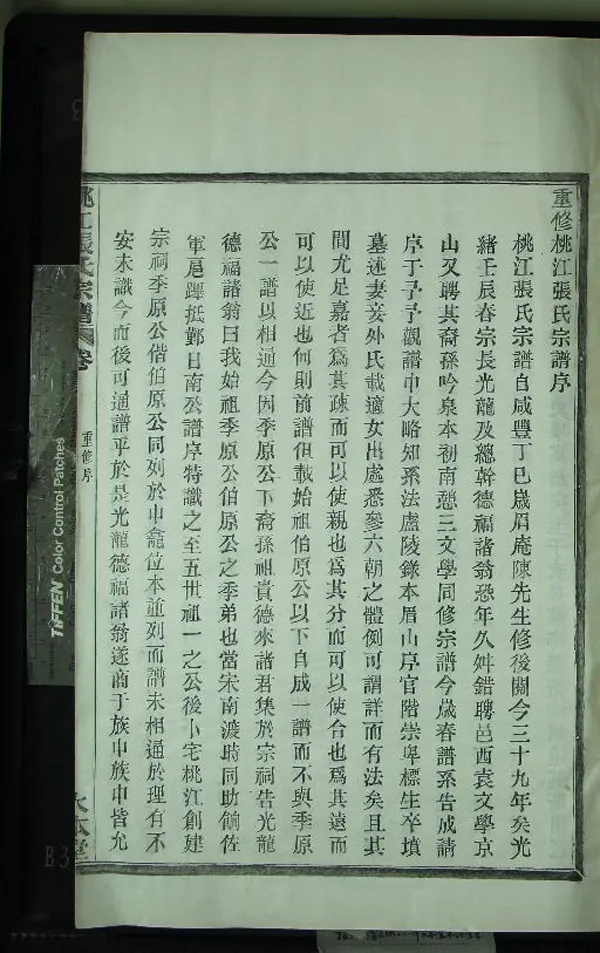 重修桃江張氏宗譜序
桃江張氏宗譜自咸豐丁巳歲眉庵陳先生修後閱今三十九年矣光
緒壬辰春宗長光龍及總幹德福諸翁恐年久舛錯聘邑西袁文學京
山又聘其裔孫吟泉本初南憩三文學同修宗譜今歲春譜系告成請
序于予予觀譜中大略知系法盧陵錄本眉山序官階崇卑標生卒墳
墓述妻妾外氏載適女出處悉參六朝之體例可謂詳而有法矣且其
間尤足嘉者為其疎而可以使親也為其分而可以使合也為其遠而
可以使近也何則前譜但載始祖伯原公以下自成一譜而不與季原
公一譜以相通今因季原公下裔孫祖賞德來諸君集於宗祠告光龍
德福諸翁曰我始祖季原公伯原公之季弟也當宋南渡時同助餉佐
軍扈蹕抵鄞日南公譜序特識之至五世祖一之公後卜宅桃江創建
宗祠季原公偕伯原公同列於中龕位本並列而譜未相通於理有不
安未識今而後可通譜乎於是光龍德福諸翁遂商于族中族中皆允
桃江張氏宗譜 卷
重修序
大本堂
TIFFEN Color Control Patches
B3